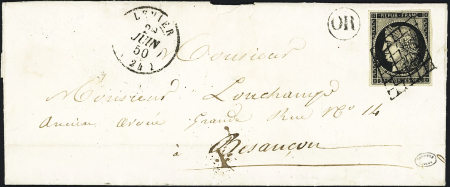 LEVIER
JUIN
50
OR
REPUB. FRANC.
Monsieur
Monsieur Louchamps
Ancien avoué Grande Rue No 14
à Besançon